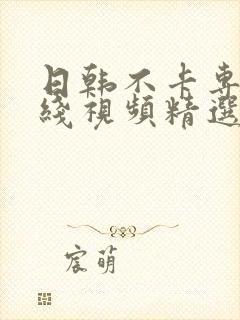 日韩不卡専
綫視頻精選
宸萌